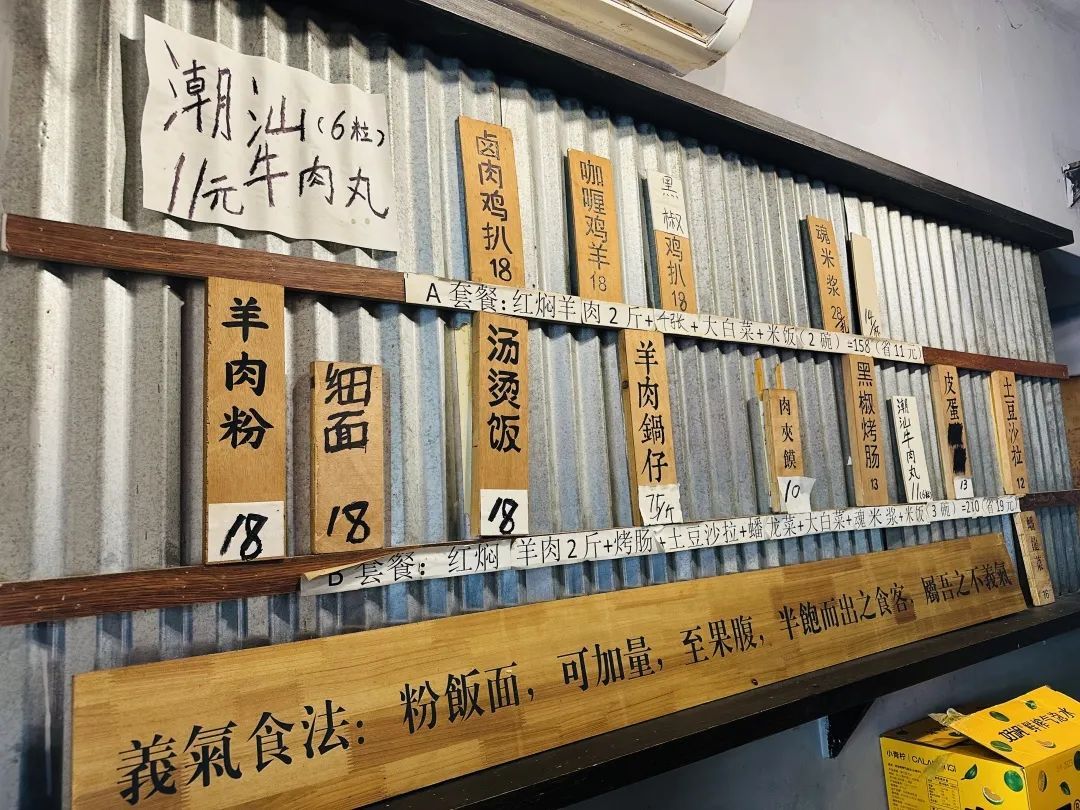 潮汕(6粒)
11元牛肉丸
卤肉鸡扒 18
咖喱鸡羊 18
黑椒鸡扒 18
魂米浆 28
A 套餐:红焖羊肉2斤+千张+大白菜+米饭(2碗)=158(省11元)
羊肉粉 18
细面 18
汤烫饭 18
羊肉鍋仔 75/斤
肉夾饃 10
黑椒烤肠 13
潮汕牛肉丸 11(6粒)
皮蛋 13
土豆沙拉 12
B 套餐:红焖羊肉2斤+烤肠+土豆沙拉+蟠龙菜+大白菜+魂米浆+米饭(3碗)=210(省19元)
蟠龙菜 16
義氣食法:粉飯面,可加量,至果腹,半飽而出之食客,屬吾之不義氣
小青柠